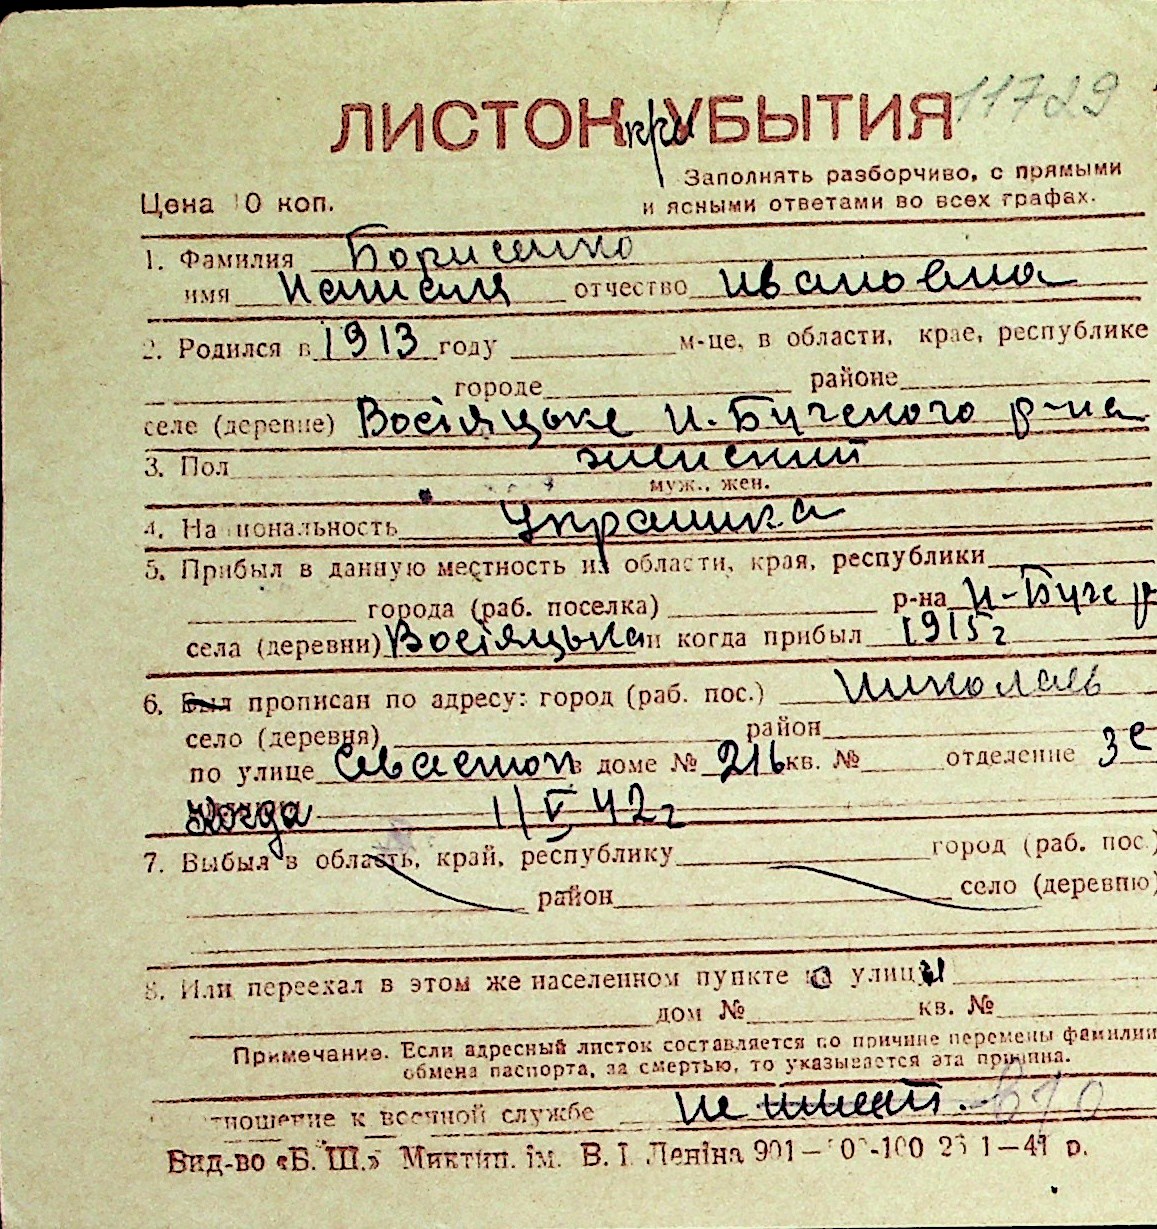 11729
ЛИСТОК при УБЫТИЯ
Заполнять разборчиво, с прямыми
и ясными ответами во всех графах.
Цена 10 коп.
1. Фамилия Борисенко
имя отчество Ивановна
2. Родился в 1913 году м-це, в области, крае, республике
городе районе
селе (деревне) Восіяцьке Н.-Бугского р-на
3. Пол женский
муж., жен.
4. Национальность Украинка
5. Прибыл в данную местность из области, края, республики
города (раб. поселка) р-на Н-Бугс р
села (деревни) Восіяцька и когда прибыл 1915 г
6. Был прописан по адресу: город (раб. пос.) Николаев
село (деревня) район
по улице Севастоп в доме № 216 кв. № отделение 3е
Когда 1/V 42 г
7. Выбыл в область, край, республику город (раб. пос.)
район село (деревню)
8. Или переехал в этом же населенном пункте с улицы
дом № кв. №
Примечание. Если адресный листок составляется по причине перемены фамилии
обмена паспорта, за смертью, то указывается эта причина.
тношение к военной службе не имеет.
Вид-во «Б. Ш.» Миктип. ім. В. І. Леніна 901— 23 1—41 р.